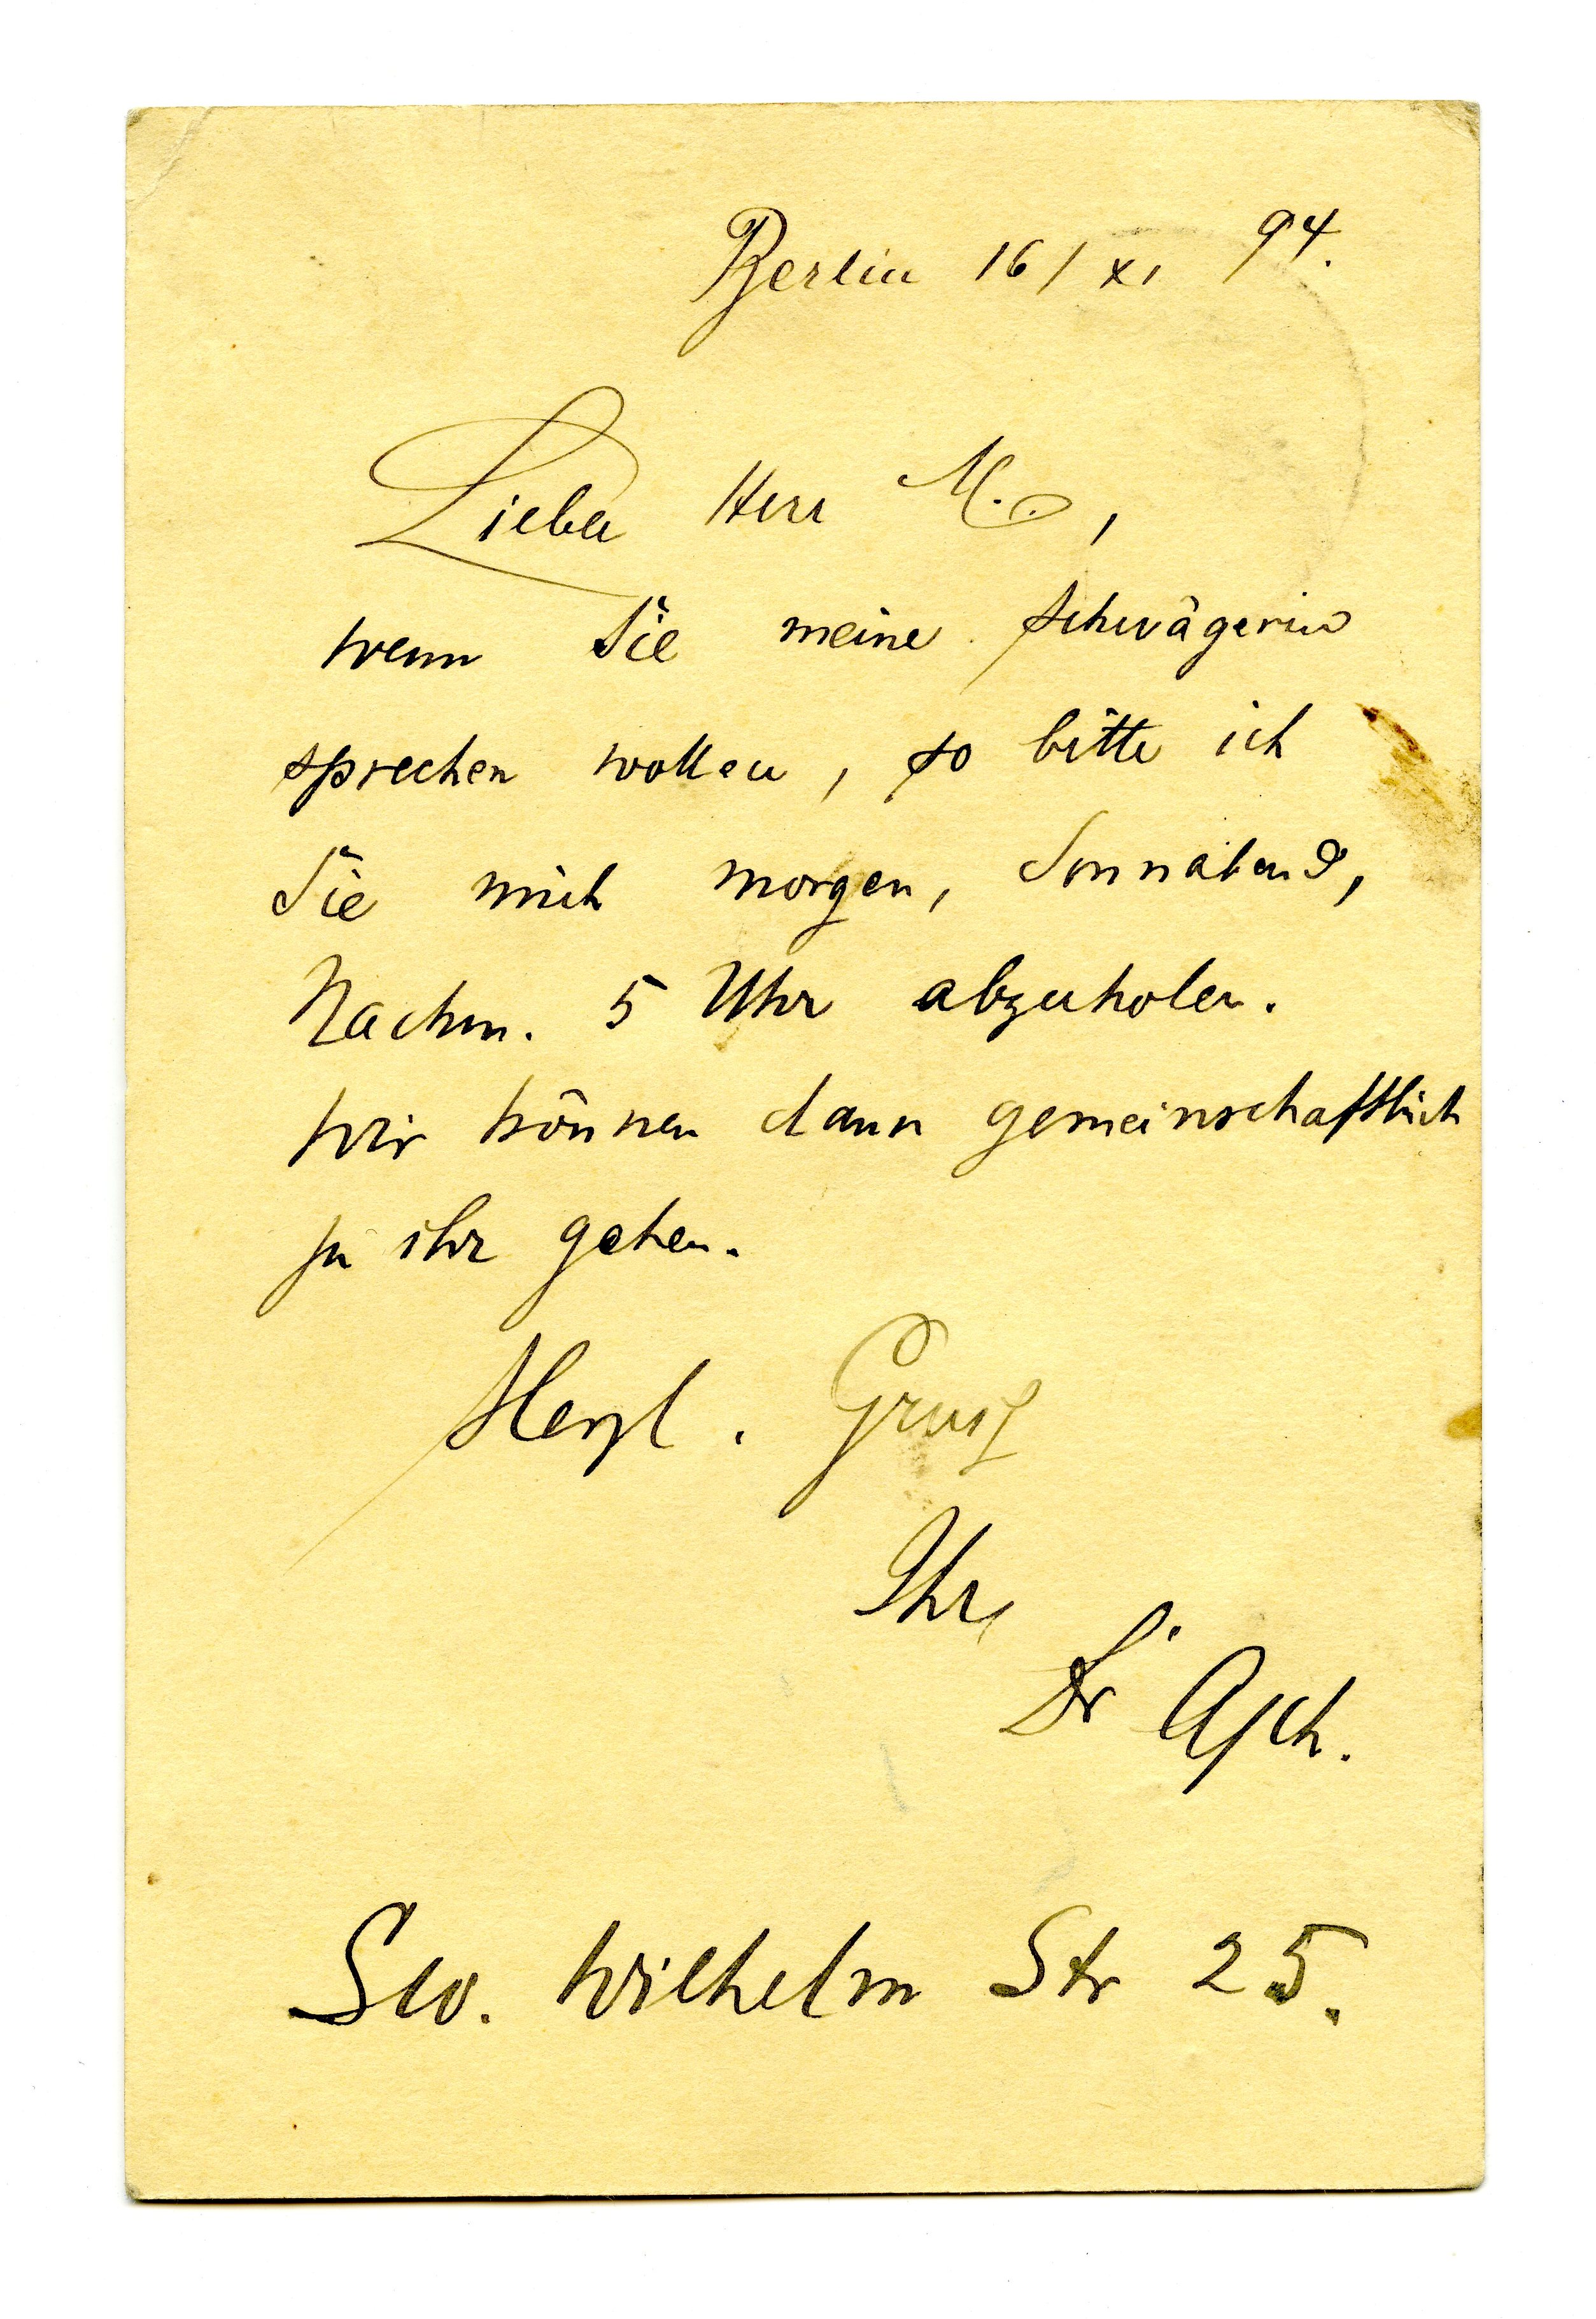 Berlin 16/XI 94.
Lieber Herr M.,
wenn Sie meine Schwägerin
sprechen wollen, so bitte ich
Sie mich morgen, Sonnabend,
Nachm. 5 Uhr abzuholen.
Wir können dann gemeinschaftlich
zu ihr gehen.
Herzl. Gruß
Ihr
Dr Asch.
SW. Wilhelm Str 25.